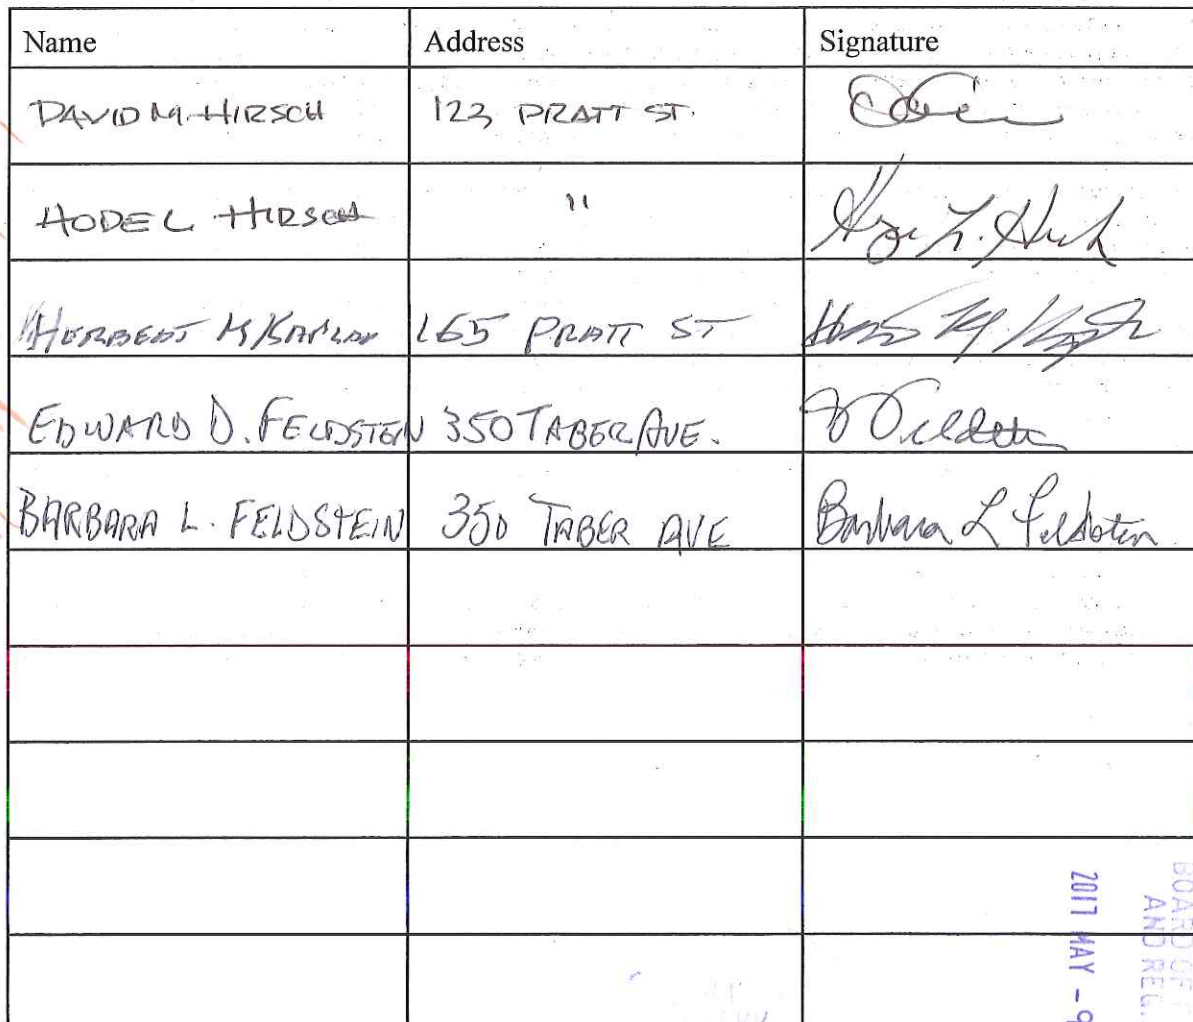 Name Address Signature
DAVID M. HIRSCH 123 PRATT ST.
HODE L. HIRSCH "
HERBERT M KAPLAN 165 PRATT ST
EDWARD D. FELDSTEIN 350 TABER AVE.
BARBARA L. FELDSTEIN 350 TABER AVE Barbara L Feldstein
BOARD OF
AND REG
2017 MAY - 9